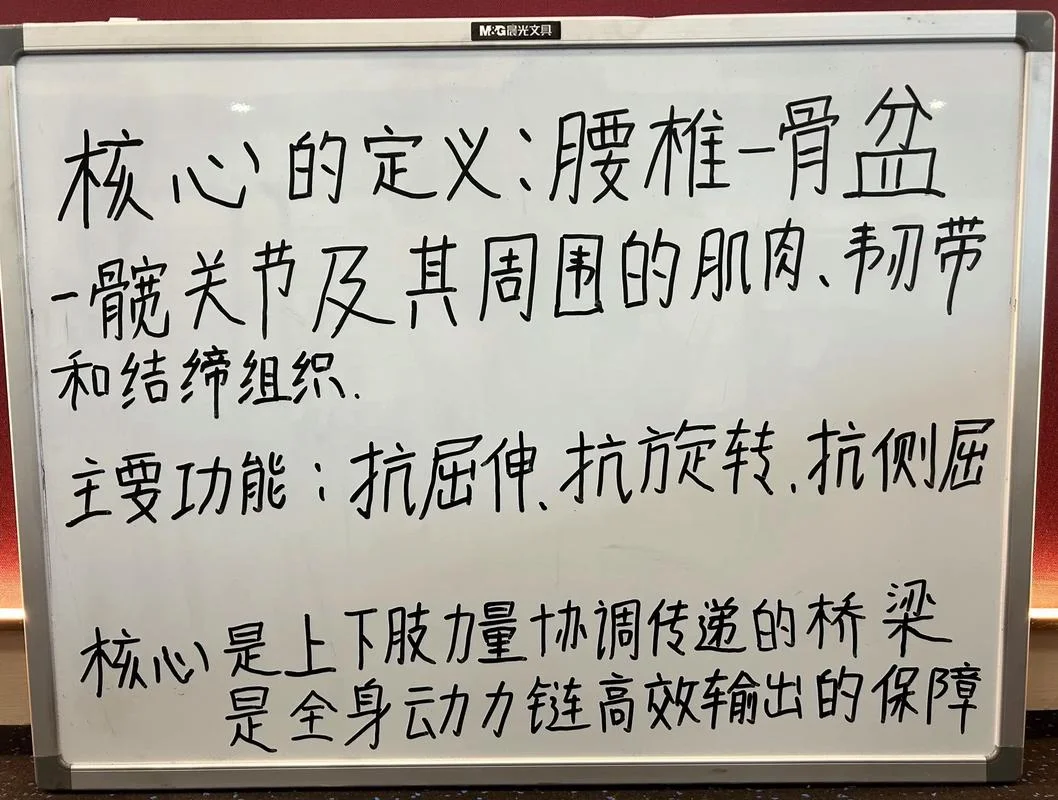 M&G晨光文具
核心的定义:腰椎-骨盆
-髋关节及其周围的肌肉、韧带
和结缔组织.
主要功能:抗屈伸、抗旋转、抗侧屈
核心是上下肢力量协调传递的桥梁
是全身动力链高效输出的保障